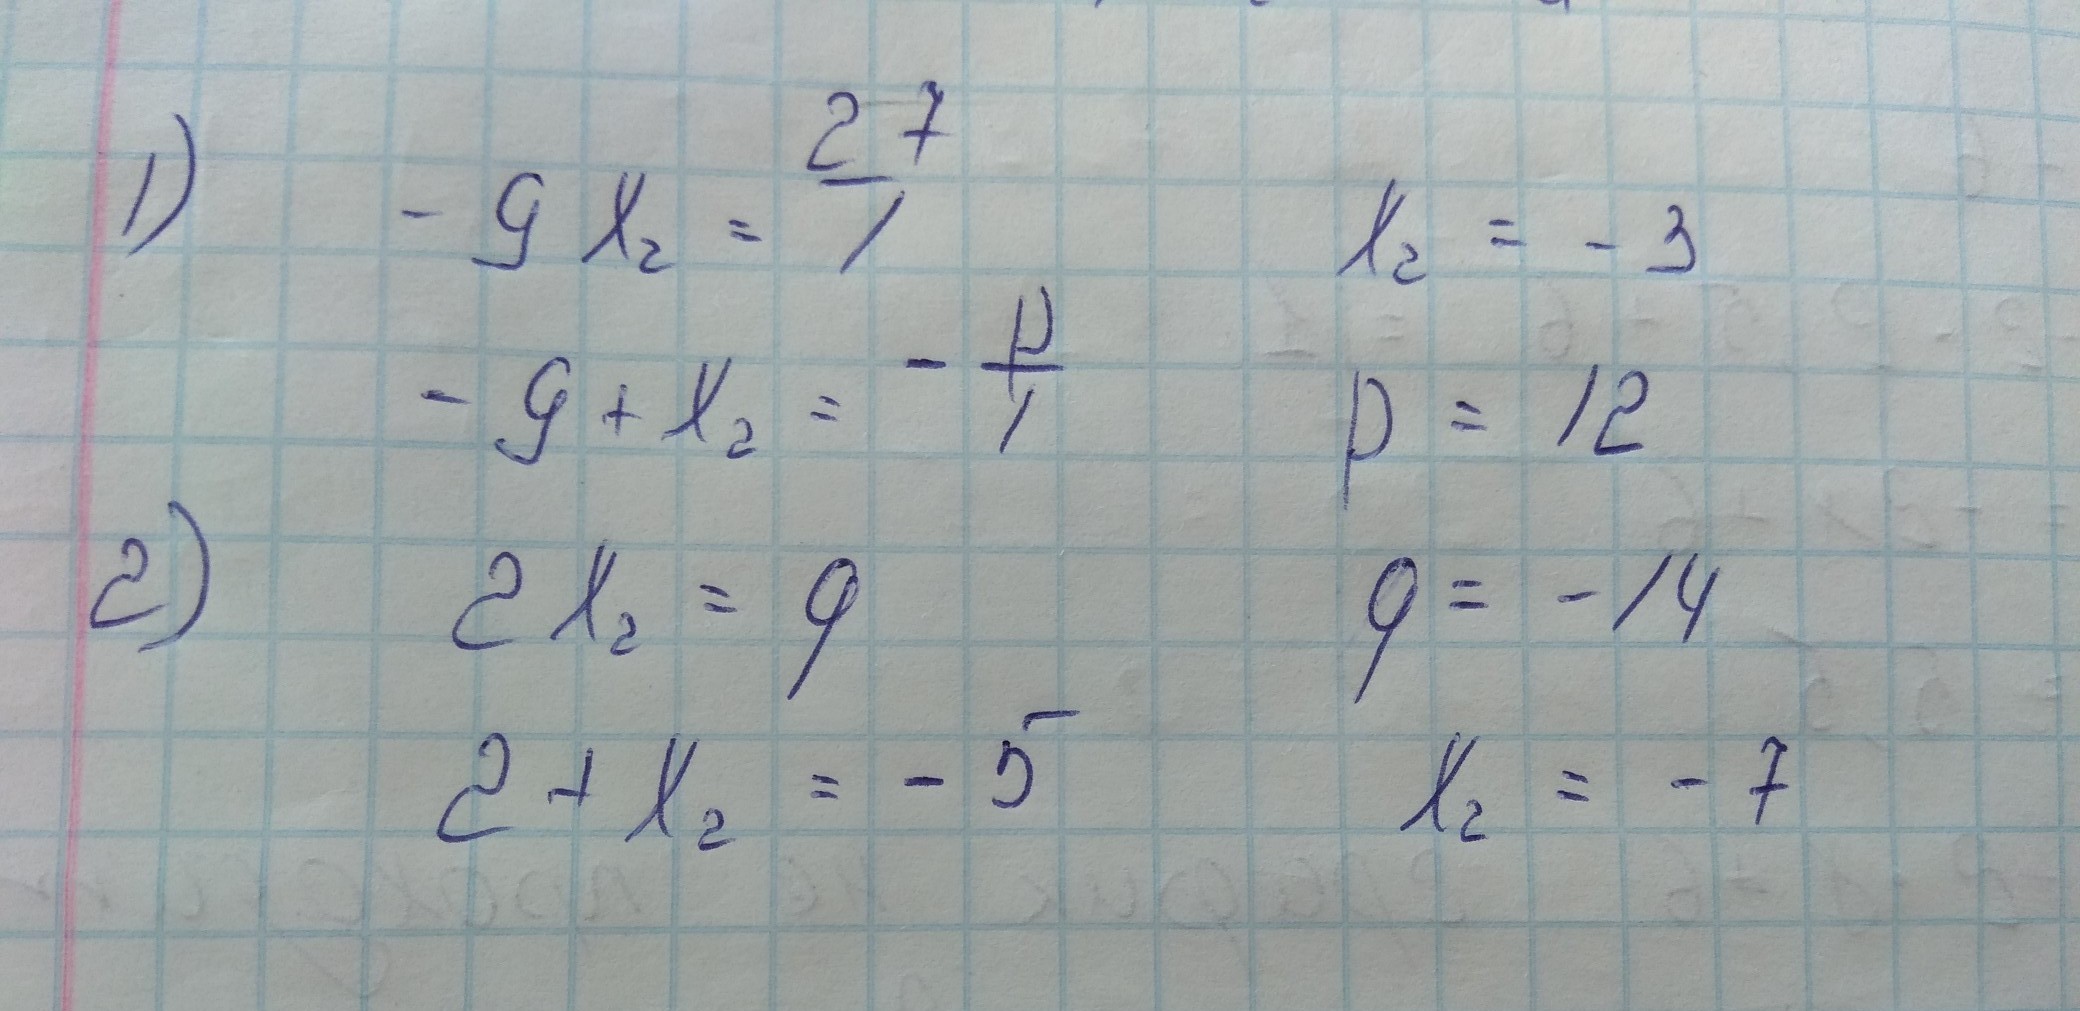 1) -9 x₂ = 27/1 x₂ = -3
-9 + x₂ = - p/1 p = 12
2) 2 x₂ = q q = -14
2 + x₂ = -5 x₂ = -7